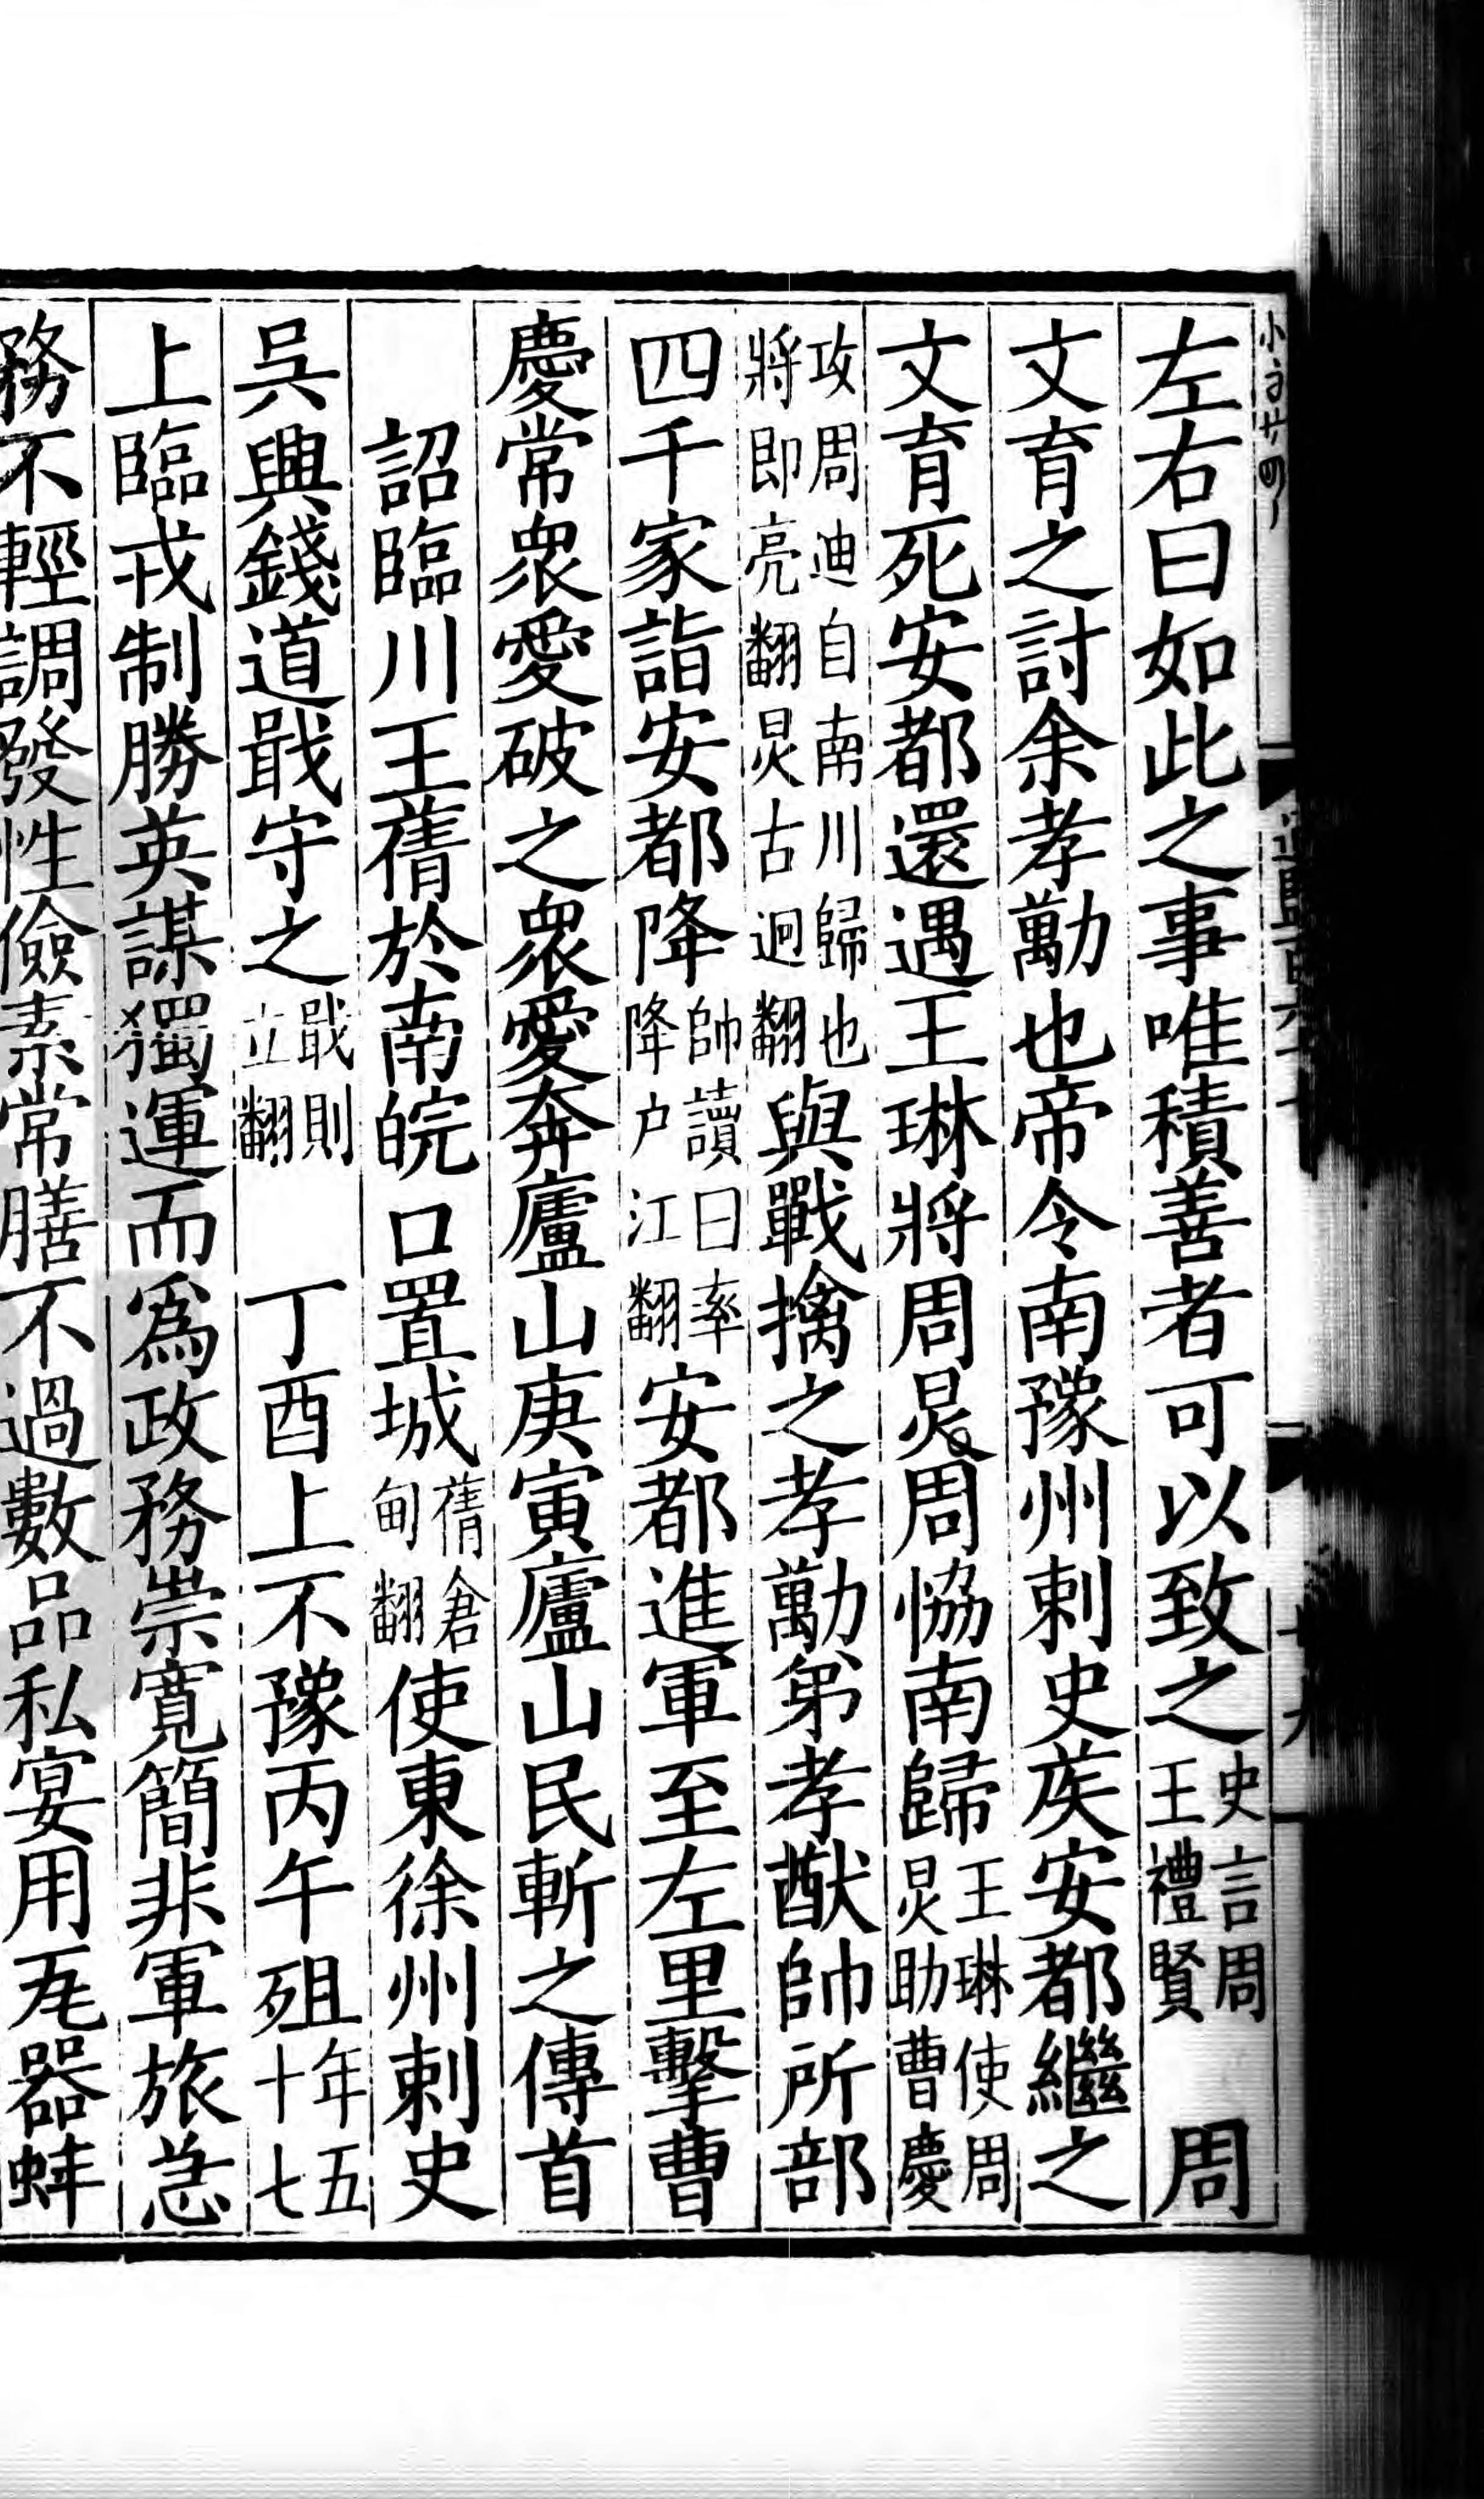 左右曰如此之事唯積善者可以致之史言周王禮賢 周
文育之討余孝勱也帝令南豫州刺史矦安都繼之
文育死安都還遇王琳將周炅周恊南歸王琳使周炅助曹慶
攻周迪自南川歸也將即亮翻炅古迥翻與戰擒之孝勱弟孝猷帥所部
四千家詣安都降帥讀曰率降户江翻安都進軍至左里擊曹
慶常衆愛破之衆愛奔廬山庚寅廬山民斬之傳首
詔臨川王蒨於南皖口置城蒨倉甸翻使東徐州刺史
吳興錢道戢守之戢則立翻 丁酉上不豫丙午殂年五十七
上臨戎制勝英謀獨運而為政務崇寬簡非軍旅急
務不輕調發性儉素常膳不過數品私宴用瓦器蚌